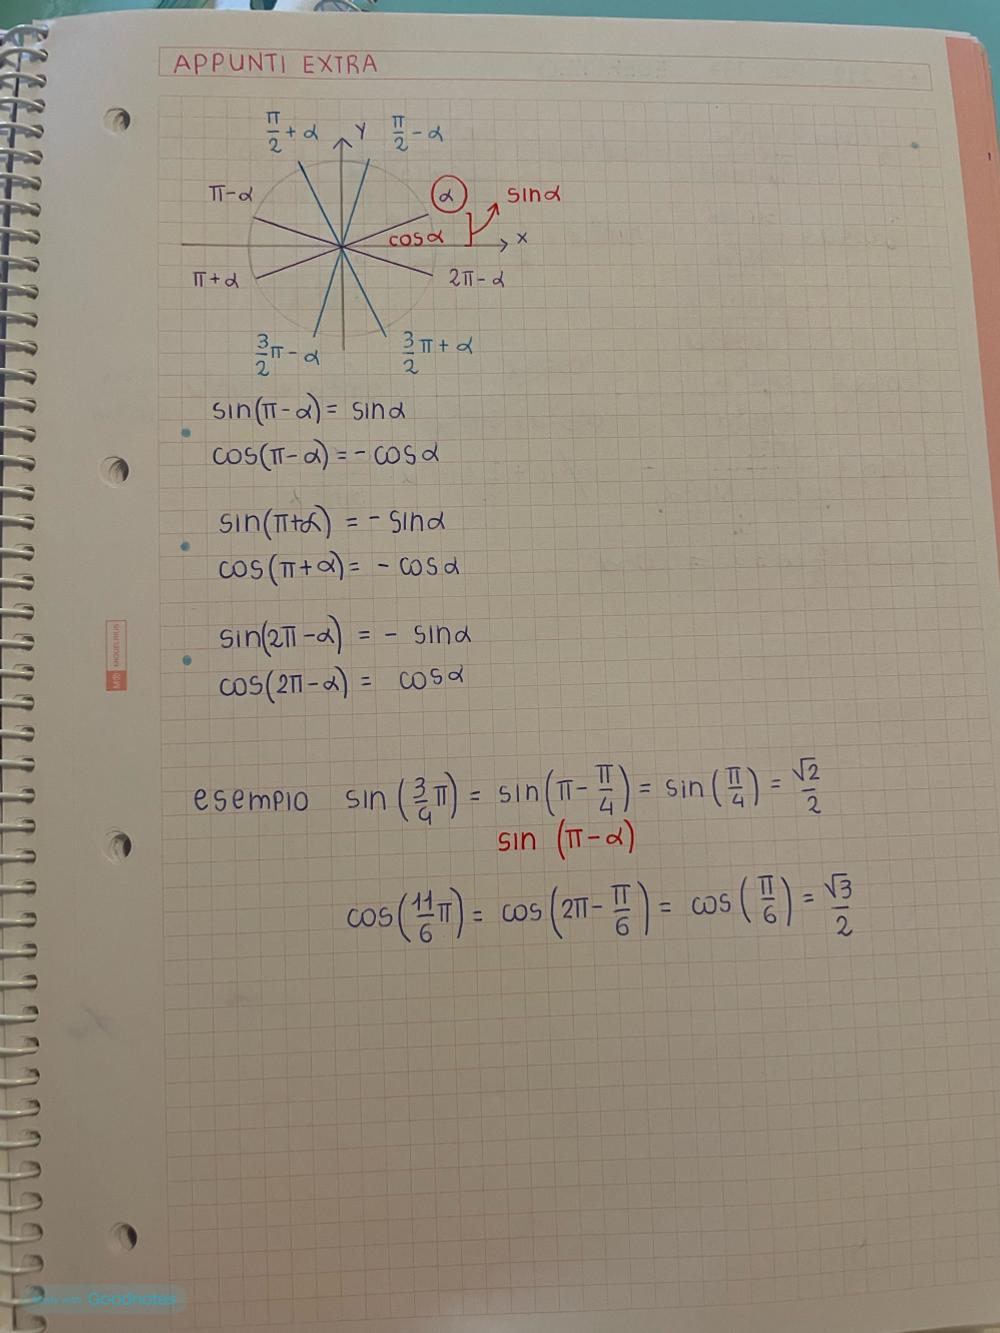 APPUNTI EXTRA
π/2 + α
Y
π/2 - α
π-α
α
sinα
cosα
x
π+α
2π-α
3/2 π - α
3/2 π + α
sin(π-α) = sinα
cos(π-α) = - cosα
sin(π+α) = - sinα
cos(π+α) = - cosα
sin(2π-α) = - sinα
cos(2π-α) = cosα
esempio sin(3/4 π) = sin(π - π/4) = sin(π/4) = √2/2
sin (π-α)
cos(11/6 π) = cos(2π - π/6) = cos(π/6) = √3/2
MIQUELRIUS
Made with Goodnotes